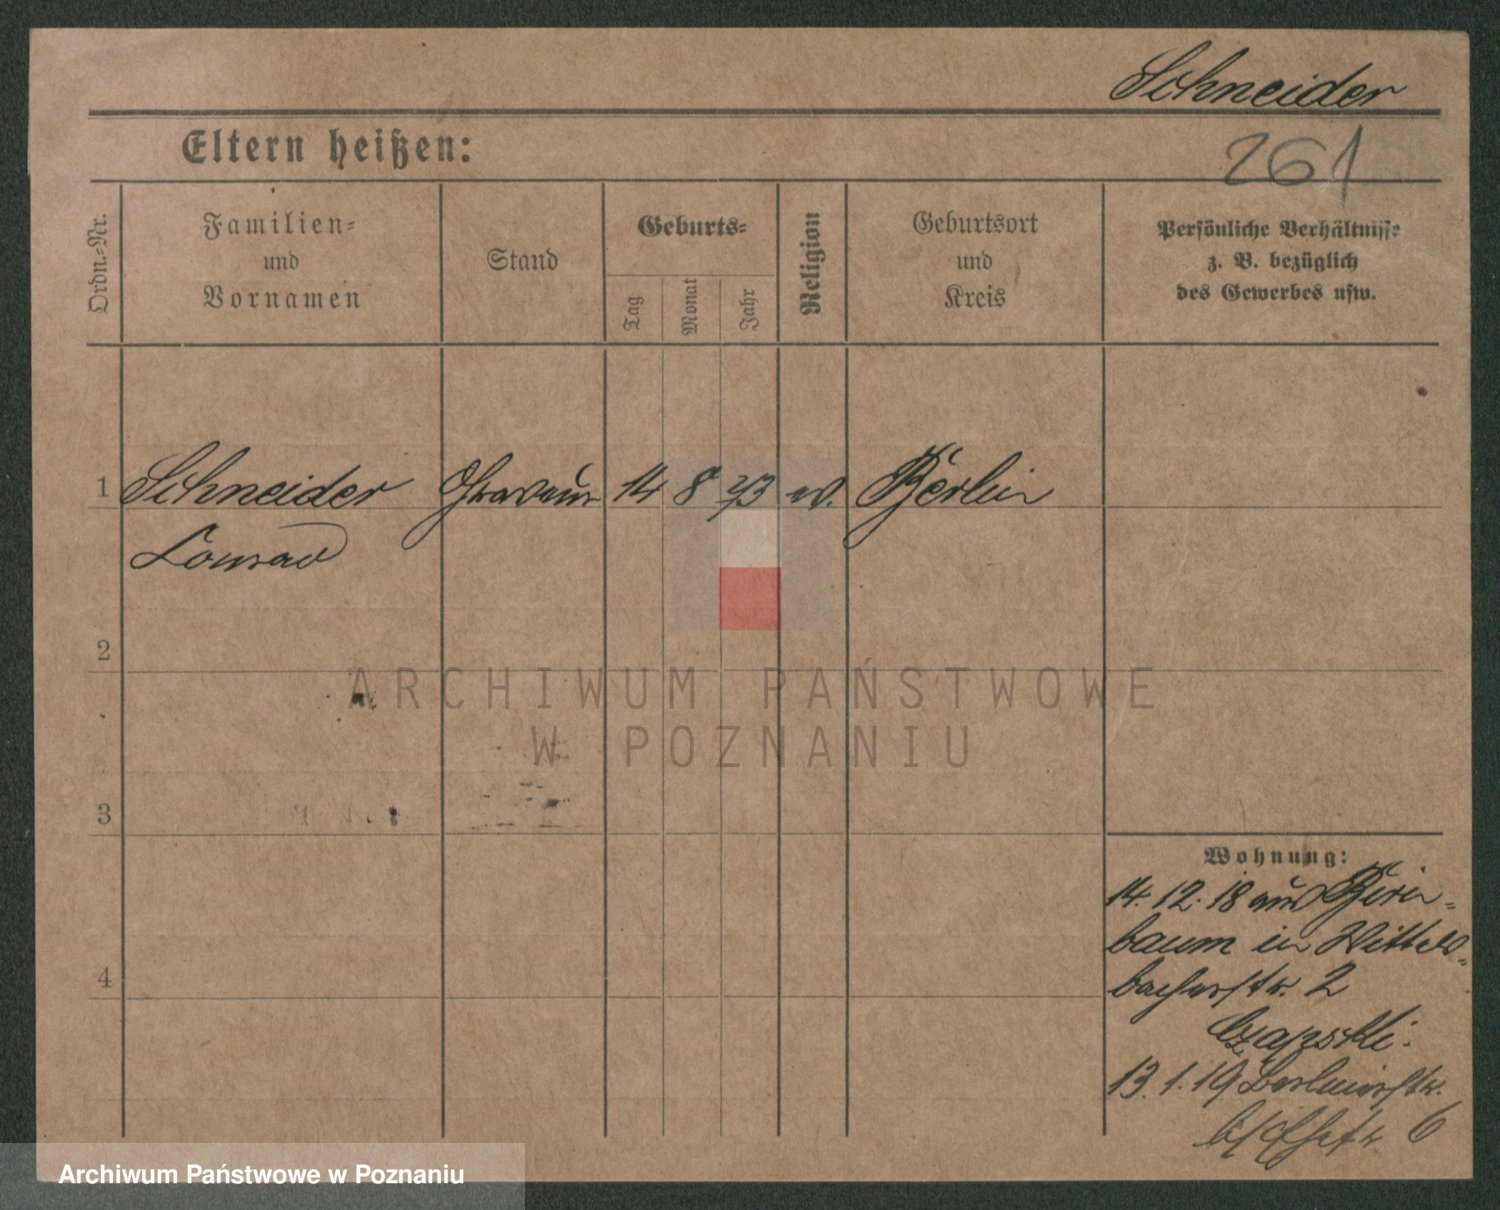 Schneider
Eltern heißen:
261
Ordn.=Nr.
Familien=
und
Vornamen
Stand
Geburts=
Tag
Monat
Jahr
Religion
Geburtsort
und
Kreis
Persönliche Verhältnisse
z. B. bezüglich
des Gewerbes usw.
1 Schneider Graveur 14 8 73 ev. Berlin
Conrad
2
ARCHIWUM PAŃSTWOWE
W POZNANIU
3
Wohnung:
14.12.18 aus Birn=
baum in Wittels=
4
bacherstr. 2
Czapski.
13.1.19 Berlinerstr.
6
Archiwum Państwowe w Poznaniu